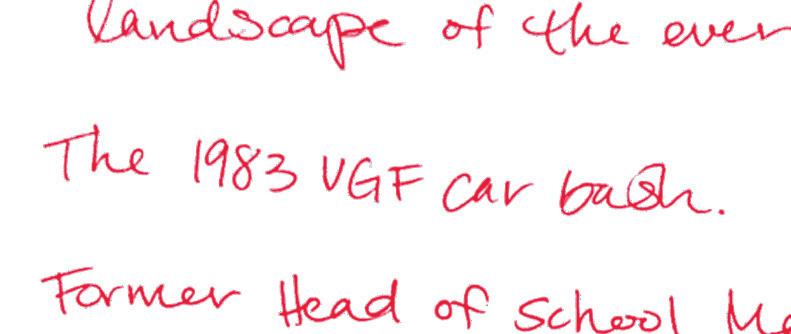 landscape of the ever
The 1983 VGF car bash.
Former Head of School